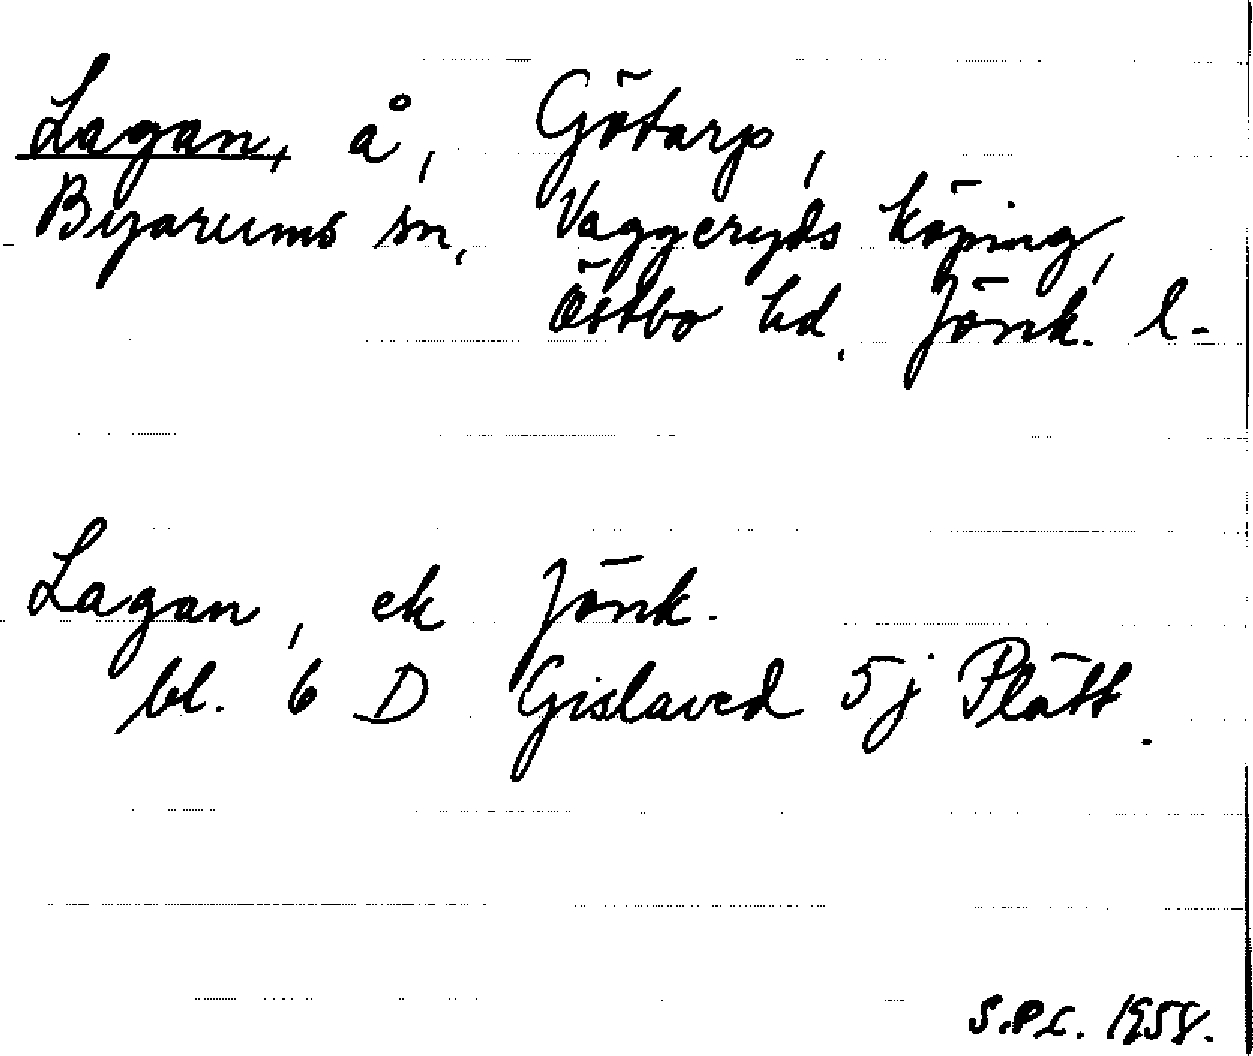 Lagan, å, Götarp,
Byarums sn, Vaggeryds köping,
Östbo hd, Jönk. l.
Lagan, ek Jönk.
bl. 6 D Gislaved 5j Plätt.
S.P.L. 1958.